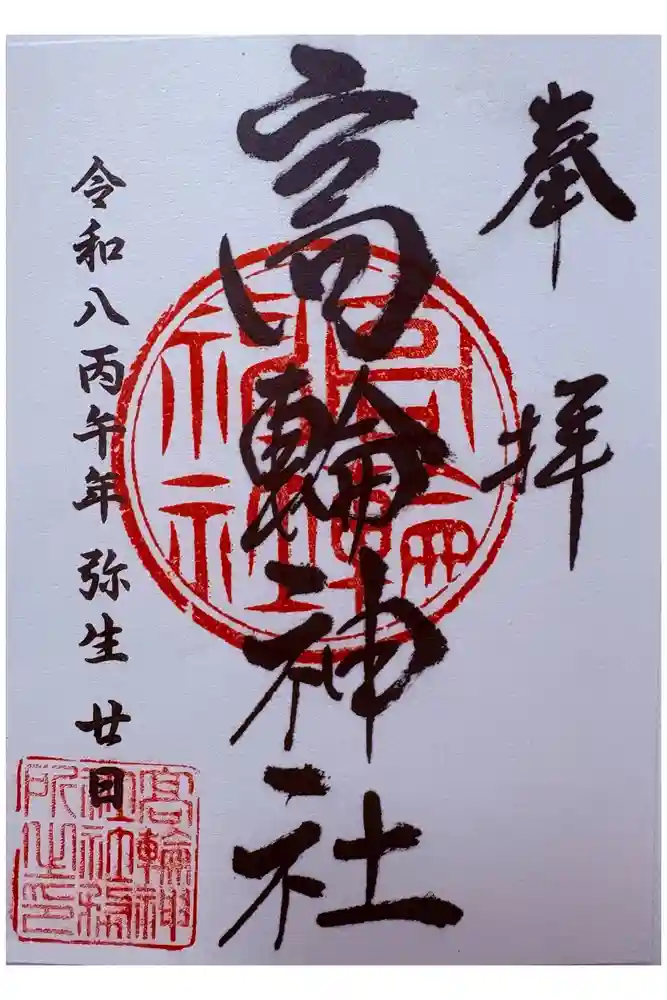 奉拝
高輪神社
令和八丙午年 弥生 廿日
高輪神社
高輪神
社社務
所之印